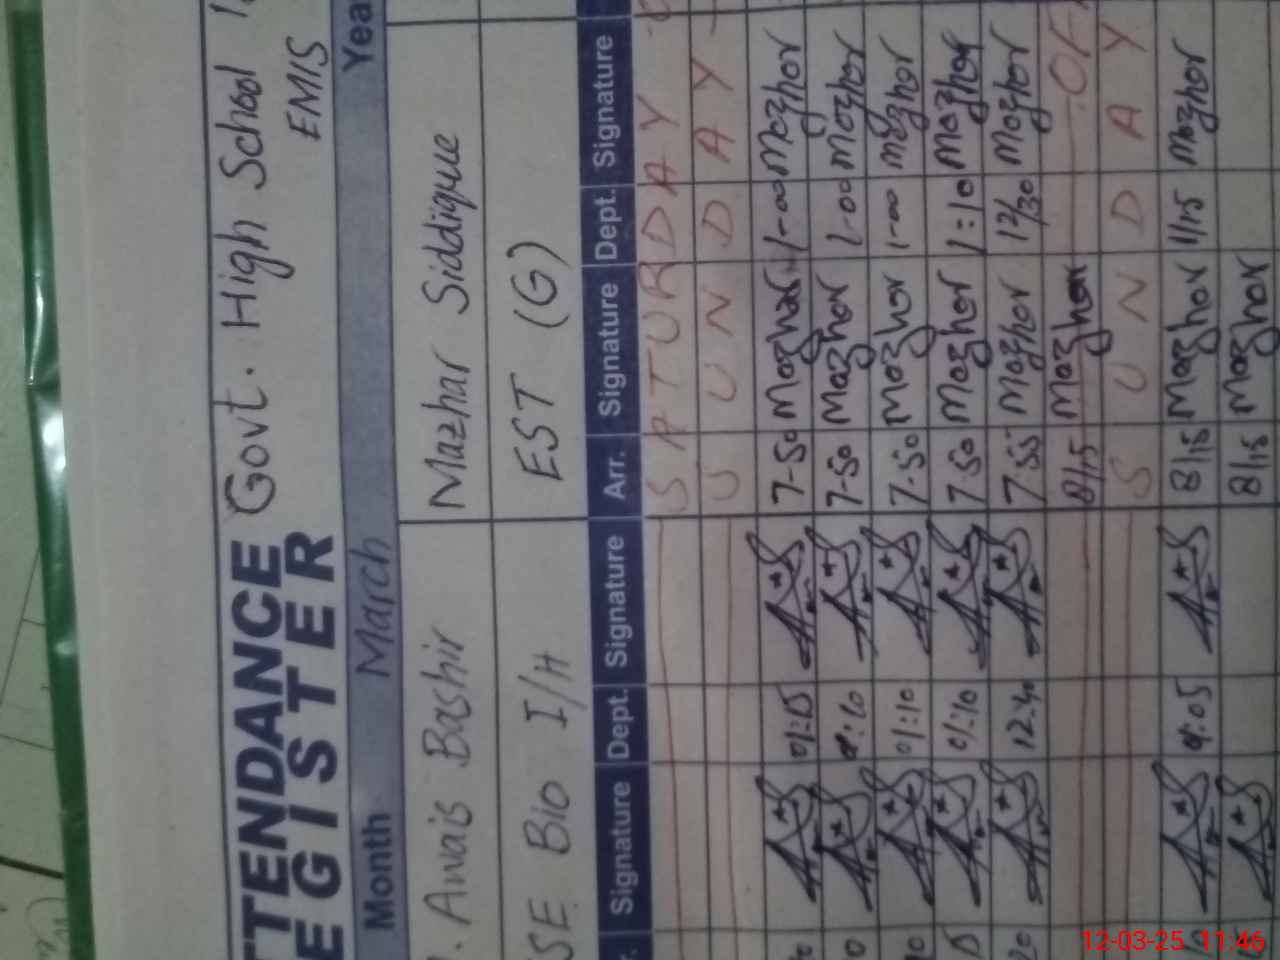 ATTENDANCE Govt. High School
REGISTER EMIS
Month March Year
Awais Bashir Mazhar Siddique
SSE Bio I/H EST (G)
Signature Dept. Signature Arr. Signature Dept. Signature
SATURDAY
SUNDAY
01:15 7-50 Mazhar 1-00 Mazhar
01:10 7-50 Mazhar 1-00 Mazhar
01:10 7-50 Mazhar 1-00 Mazhar
01:10 7-50 Mazhar 1=10 Mazhar
12:40 7-55 Mazhar 12/30 Mazhar
8/15 Mazhar OF
SUNDAY
01:05 8/15 Mazhar 11/15 Mazhar
8/15 Mazhar
12-03-25 11:46